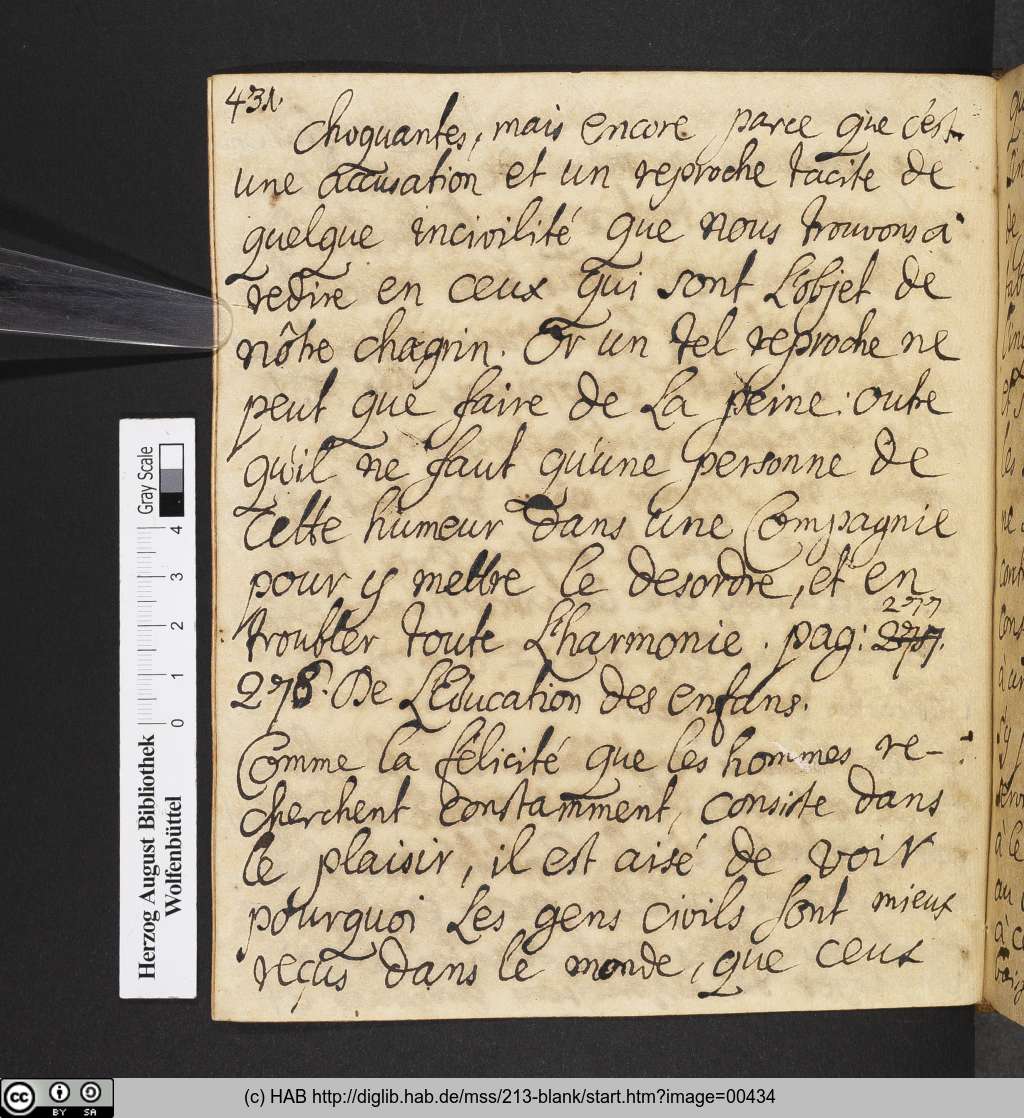 431.
choquantes, mais encore parce que c'est
une accusation et un reproche tacite de
quelque incivilité que nous trouvons à
redire en ceux qui sont L'objet de
nôtre chagrin. Or un tel reproche ne
peut que faire de La peine: outre
qu'il ne faut qu'une personne de
cette humeur dans une Compagnie
pour y mettre le desordre, et en
277
troubler toute L'harmonie. pag: 2757.
278. De L'Education des enfans.
Comme la félicité que les hommes re-
cherchent constamment, consiste dans
le plaisir, il est aisé de voir
pourquoi Les gens civils sont mieux
reçus dans le monde, que ceux
Gray Scale
0 1 2 3 4
Herzog August Bibliothek
Wolfenbüttel
cc BY SA
(c) HAB http://diglib.hab.de/mss/213-blank/start.htm?image=00434